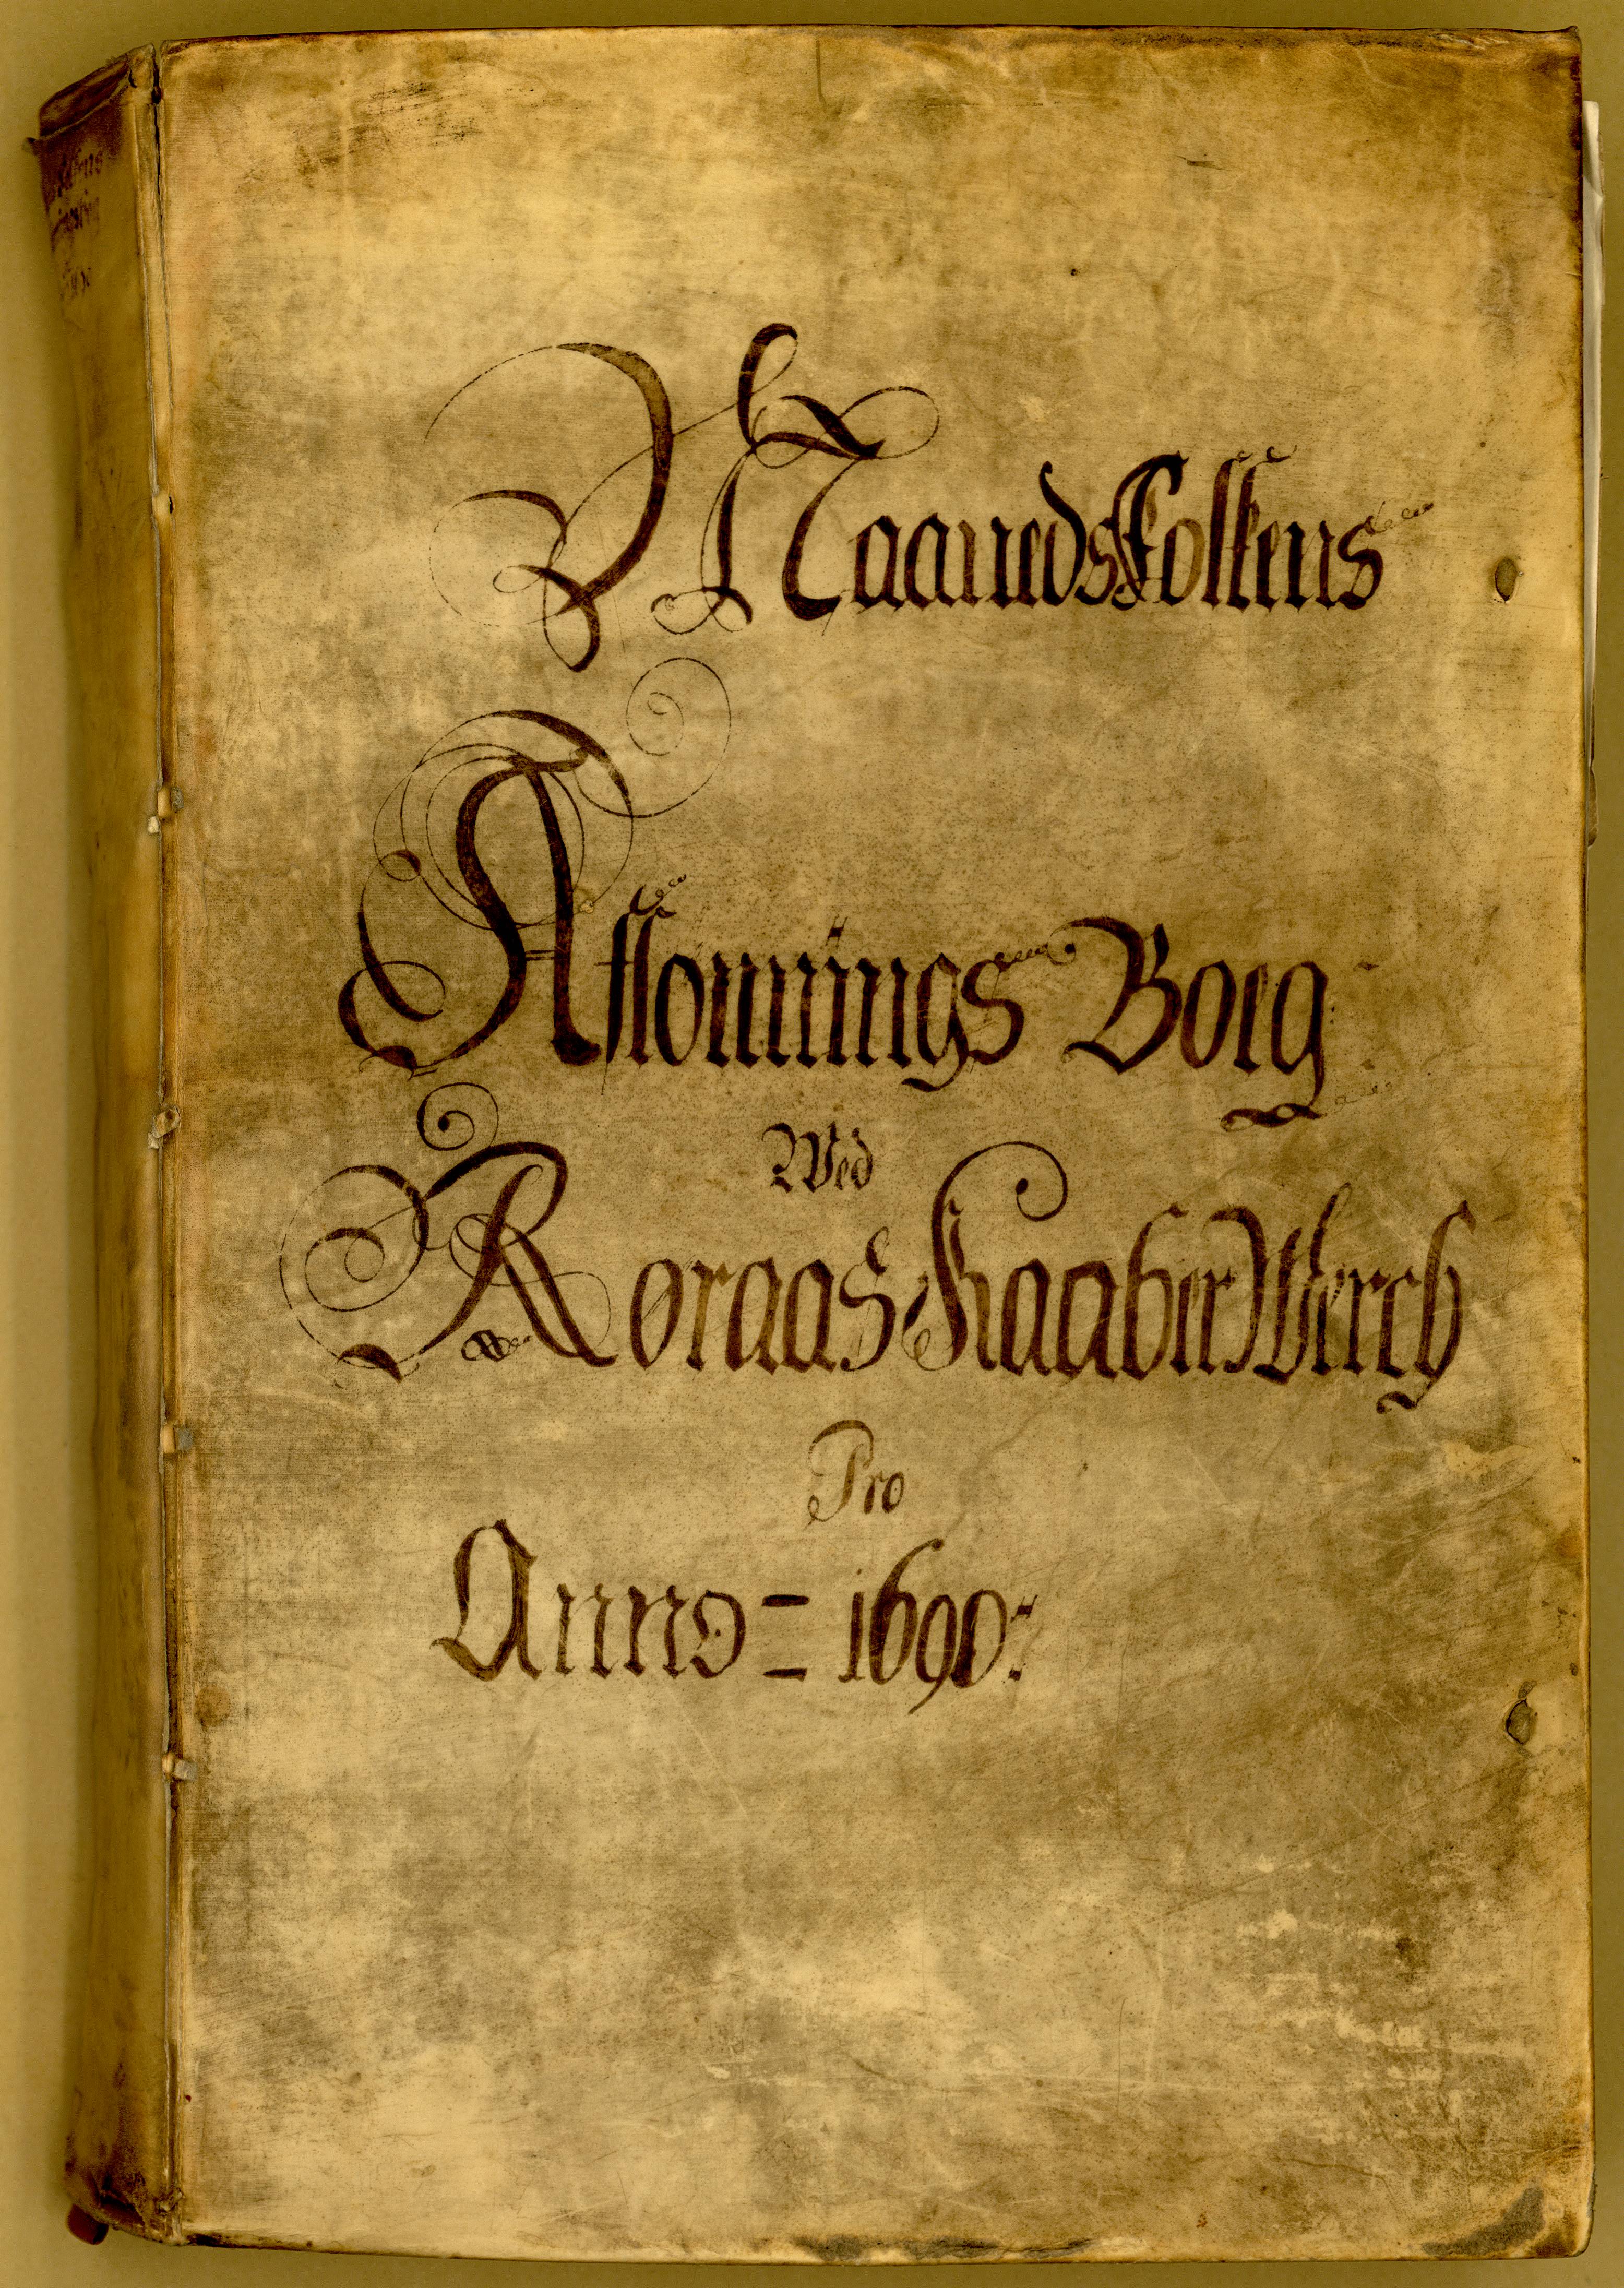 MaanedsFolkens
Aflønnings Boeg
Wed
Røraas Kaaber Werch
Pro
Anno = 1690: